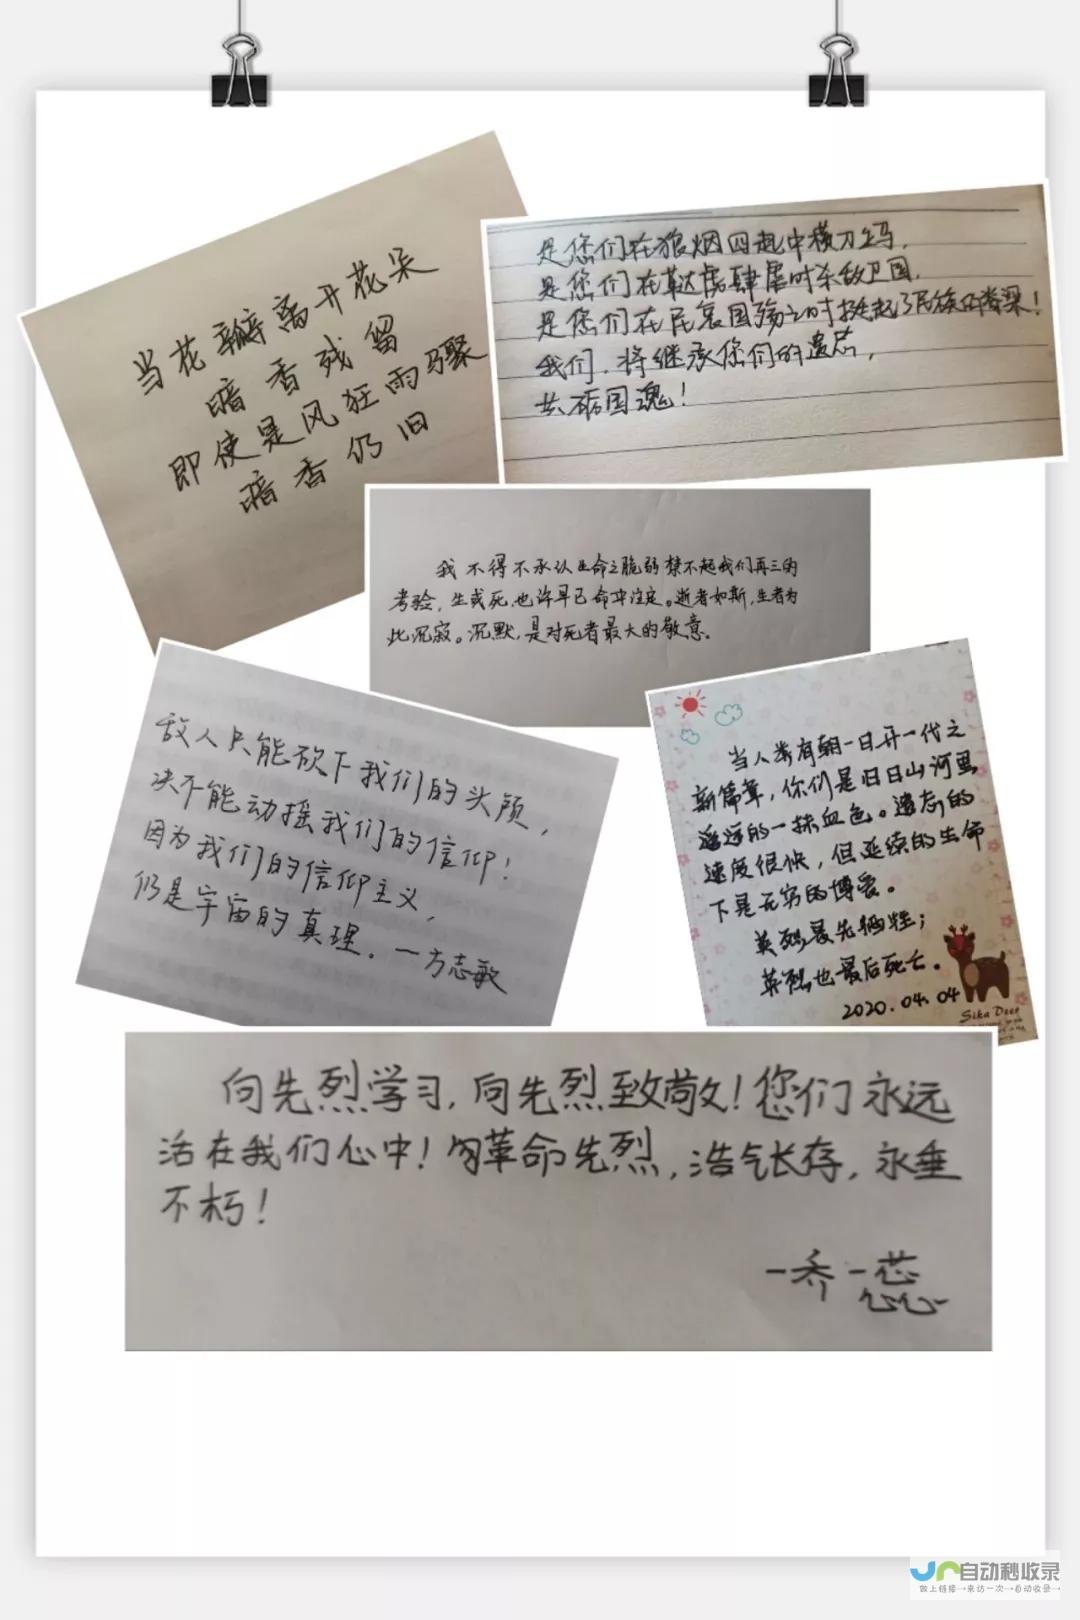 当花瓣离开花朵
暗香残留
即使是风狂雨骤
暗香仍旧
是您们在狼烟四起中横刀立马，
是您们在鞑虏肆虐时杀敌卫国，
是您们在民哀国殇之时挺起了民族的脊梁！
我们，将继承您们的遗志，
共砺国魂！
我不得不承认生命之脆弱禁不起我们再三的
考验，生或死，也许早已命中注定。逝者如斯，生者为
此沉寂。沉默，是对死者最大的敬意。
敌人只能砍下我们的头颅，
决不能动摇我们的信仰！
因为我们的信仰主义，
仍是宇宙的真理。—方志敏
当人类有朝一日开一代之
新篇章，你们是旧日山河里
遥远的一抹血色。遗忘的
速度很快，但延续的生命
下是无穷的博爱。
英烈最先牺牲；
英烈也最后死亡。
2020.04.04
Sika Deer
向先烈学习，向先烈致敬！您们永远
活在我们心中！为革命先烈，浩气长存，永垂
不朽！
—乔一蕊
自动秒收录
做上链接→来访一次→自动收录